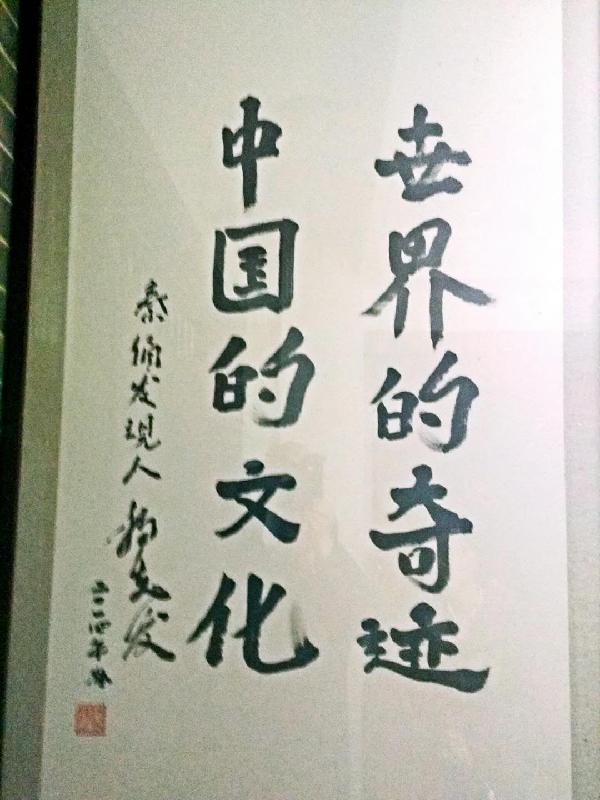 世界的奇迹
中国的文化
秦俑发现人 杨先发
二〇一四年秋